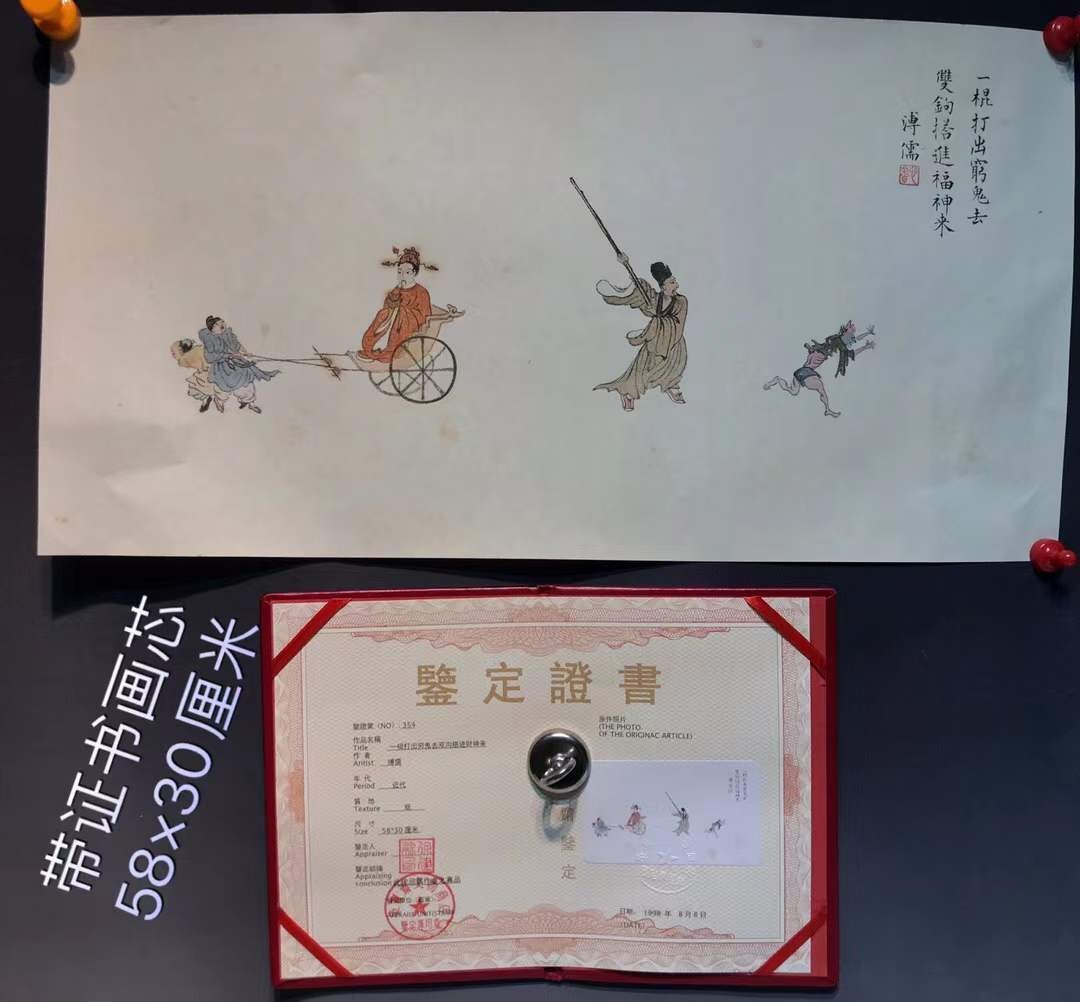 一棍打出窮鬼去
雙鉤搭進福神來
溥儒
带证书画芯
58×30厘米
鑒定證書
鑒證號（NO）. 354
作品名稱
Title 一棍打出穷鬼去双沟搭进财神来
作 者
Artist 溥儒
年 代
Period 近代
質 地
Texture 纸
尺 寸
Size 58*30 厘米
鑒定人
Appraiser
鑒定結論
Appraising
conclusion
原件照片
(THE PHOTO
OF THE ORIGINAC ARTICLE)
鑒
定
日期： 1998 年 8 月 8 日
(DATE)